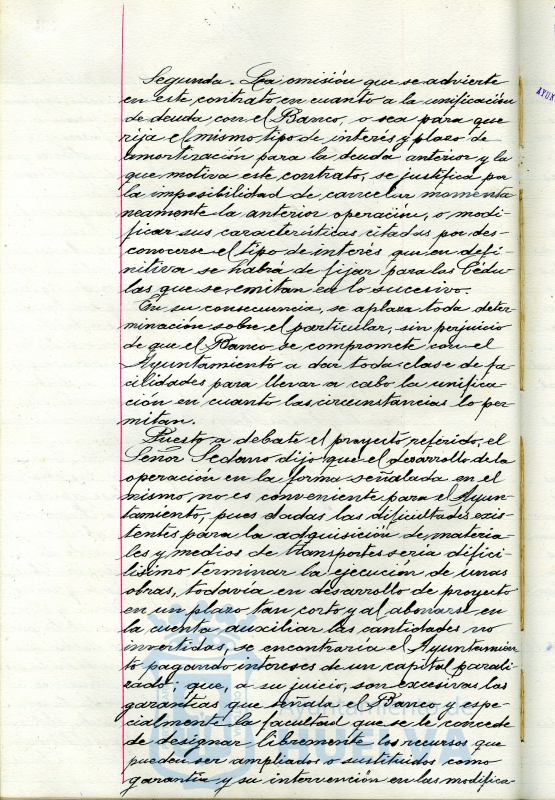 Segunda.- La emisión que se advierte
en este contrato en cuanto a la unificación
de deuda con el Banco, o sea para que
rija el mismo tipo de interés y plazo de
amortización para la deuda anterior y la
que motiva este contrato, se justifica por
la imposibilidad de cancelar momenta
neamente la anterior operación, o modi-
ficar sus características citadas por des-
conocerse el tipo de interés que en defi-
nitiva se habrá de fijar para las Cédu-
las que se emitan en lo sucesivo.
En su consecuencia, se aplaza toda deter
minación sobre el particular, sin perjuicio
de que el Banco se compromete con el
Ayuntamiento a dar toda clase de fa-
cilidades para llevar a cabo la unifica-
ción en cuanto las circunstancias lo per
mitan.
Puesto a debate el proyecto referido, el
Señor Sedano dijo: que el desarrollo de la
operación en la forma señalada en el
mismo, no es conveniente para el Ayun-
tamiento, pues dadas las dificultades exis-
tentes para la adquisición de materia-
les y medios de transportes seria difici-
lisimo terminar la ejecución de unas
obras, todavía en desarrollo de proyecto
en un plazo tan corto y al abonarse en
la cuenta auxiliar las cantidades no
invertidas, se encontraria el Ayuntamien
to pagando intereses de un capital parali
zado; que, a su juicio, son excesivas las
garantías que señala el Banco y espe-
cialmente la facultad que se le concede
de designar libremente los recursos que
puedan ser ampliados o sustituidos como
garantía y su intervención en las modifica-
Ayuntamiento de
HUELVA
AYUN